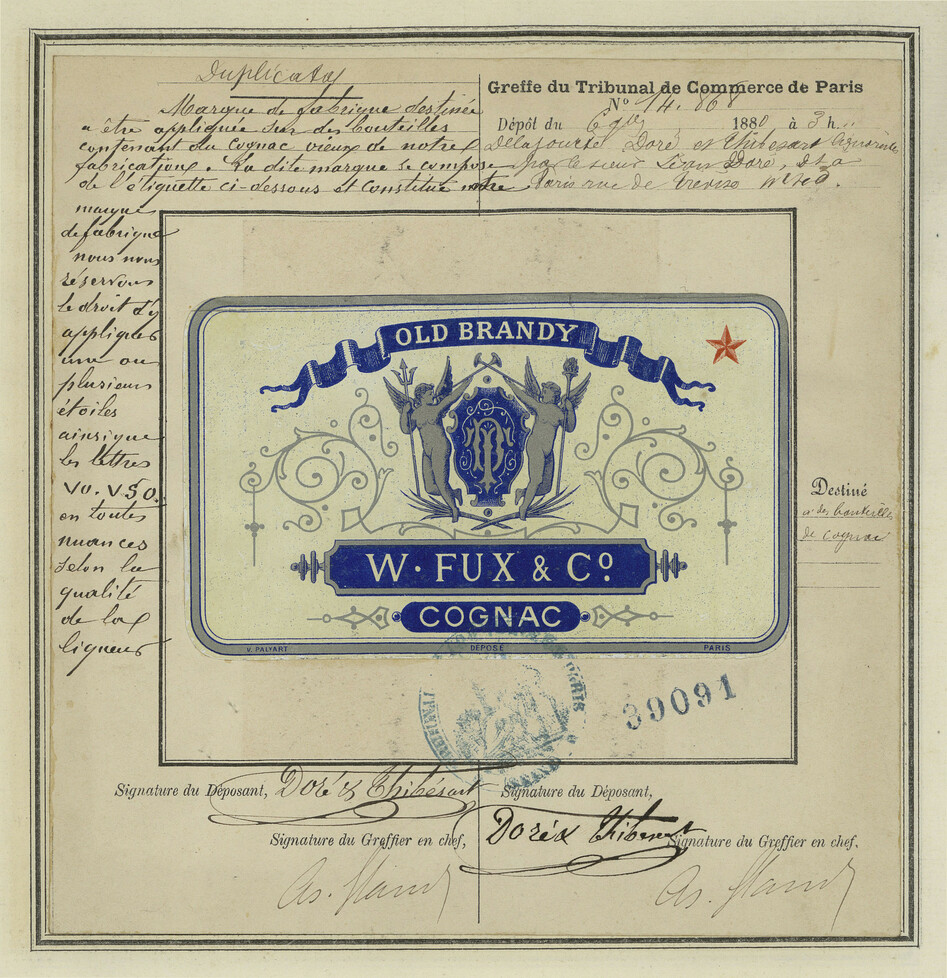 Duplicata
Marque de fabrique destinée
a être appliquée sur des bouteilles
contenant du Cognac vieux de notre
fabrication. La dite marque se compose
de l'étiquette ci-dessous et constitue notre
marque
de fabrique
nous nous
réservons
le droit d'y
appliquer
une ou
plusieurs
étoiles
ainsi que
les lettres
VO. VSO.
en toutes
nuances
selon la
qualité
de la
liqueur
Greffe du Tribunal de Commerce de Paris
No 14.868
Dépôt du 6 1880 à 3 h.
Delajourte Doré et Thibesart
par le sieur Léon Doré,
Paris rue de Trévise
OLD BRANDY
W. FUX & Co
COGNAC
V. PALYART DÉPOSÉ PARIS
Destiné
a des bouteilles
de cognac
39091
Signature du Déposant, Doré & Thibésart
Signature du Greffier en chef,
Signature du Déposant,
Doré & Thibesart
Signature du Greffier en chef,